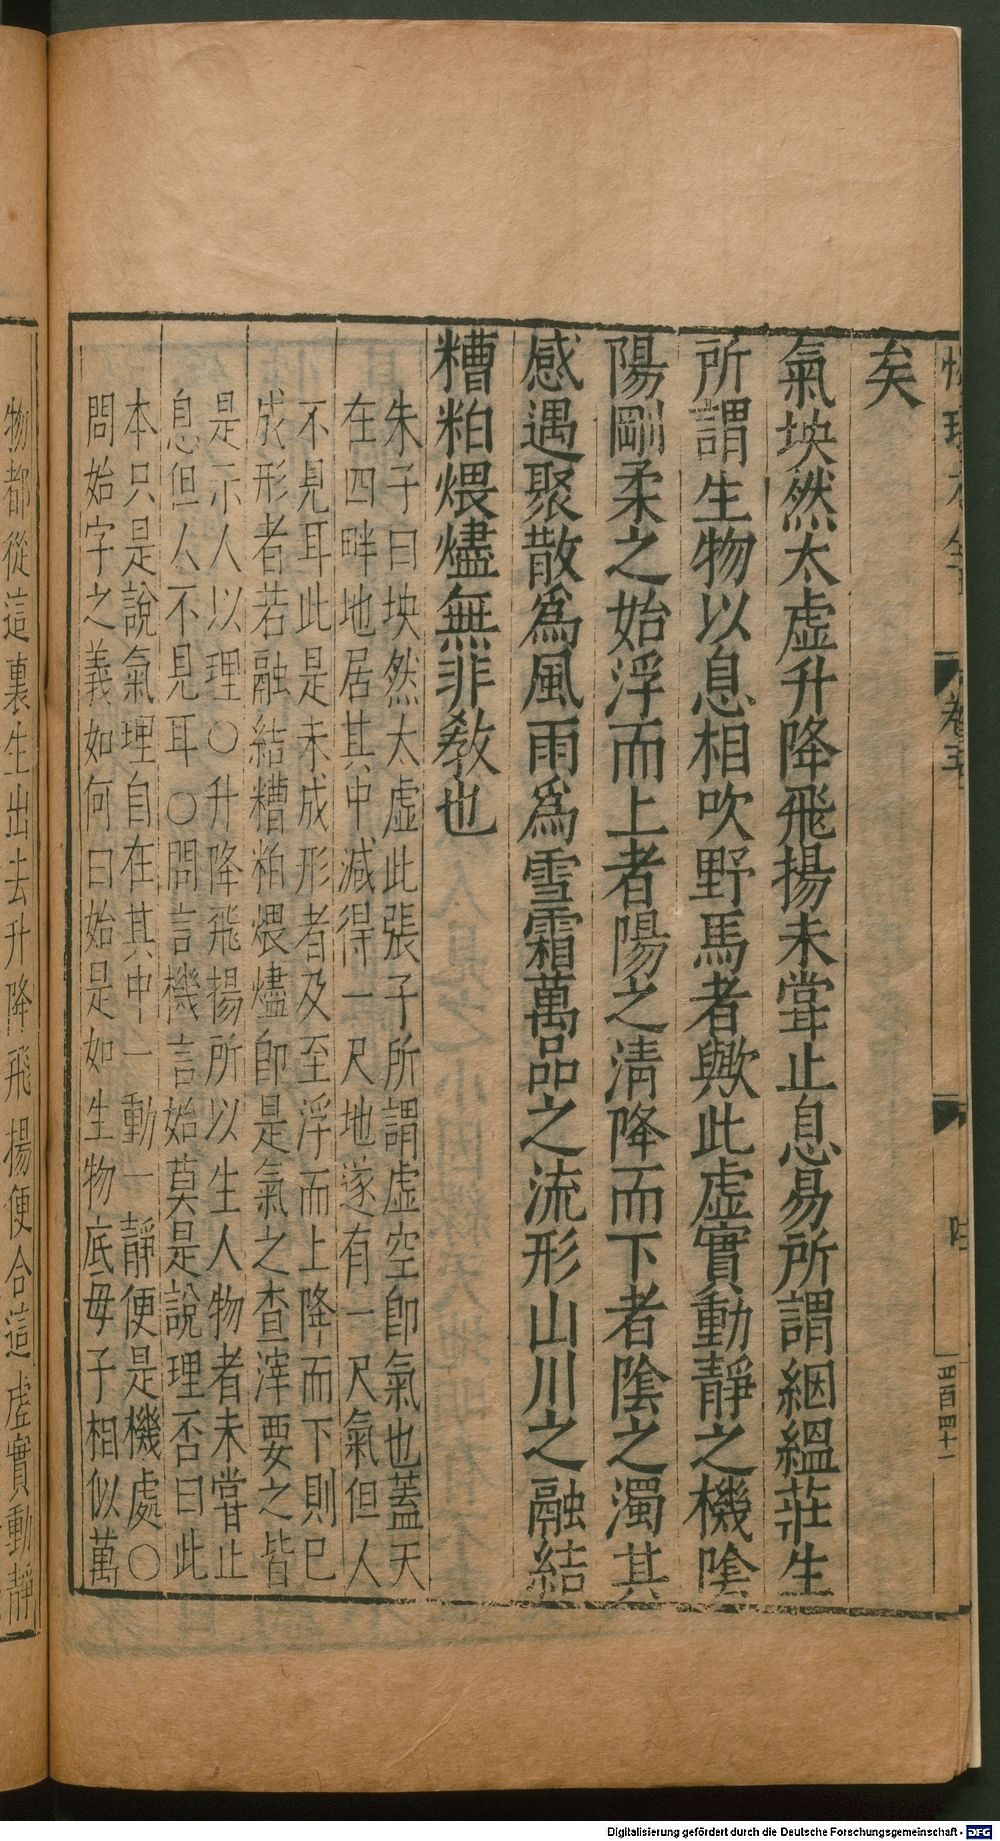 矣
氣坱然太虛升降飛揚未甞止息易所謂絪縕莊生
所謂生物以息相吹野馬者歟此虛實動靜之機陰
陽剛柔之始浮而上者陽之淸降而下者陰之濁其
感遇聚散爲風雨爲雪霜萬品之流形山川之融結
糟粕煨燼無非敎也
朱子曰坱然太虛此張子所謂虛空卽氣也蓋天
在四畔地居其中減得一尺地遂有一尺氣但人
不見耳此是未成形者及至浮而上降而下則已
成形者若融結糟粕煨燼卽是氣之查滓要之皆
是示人以理〇升降飛揚所以生人物者未嘗止
息但人不見耳〇問言機言始莫是說理否曰此
本只是說氣理自在其中一動一靜便是機處〇
問始字之義如何曰始是如生物底母子相似萬
物都從這裏生出去升降飛揚便合這虛實動靜
卷五
四百四十一
Digitalisierung gefördert durch die Deutsche Forschungsgemeinschaft - DFG